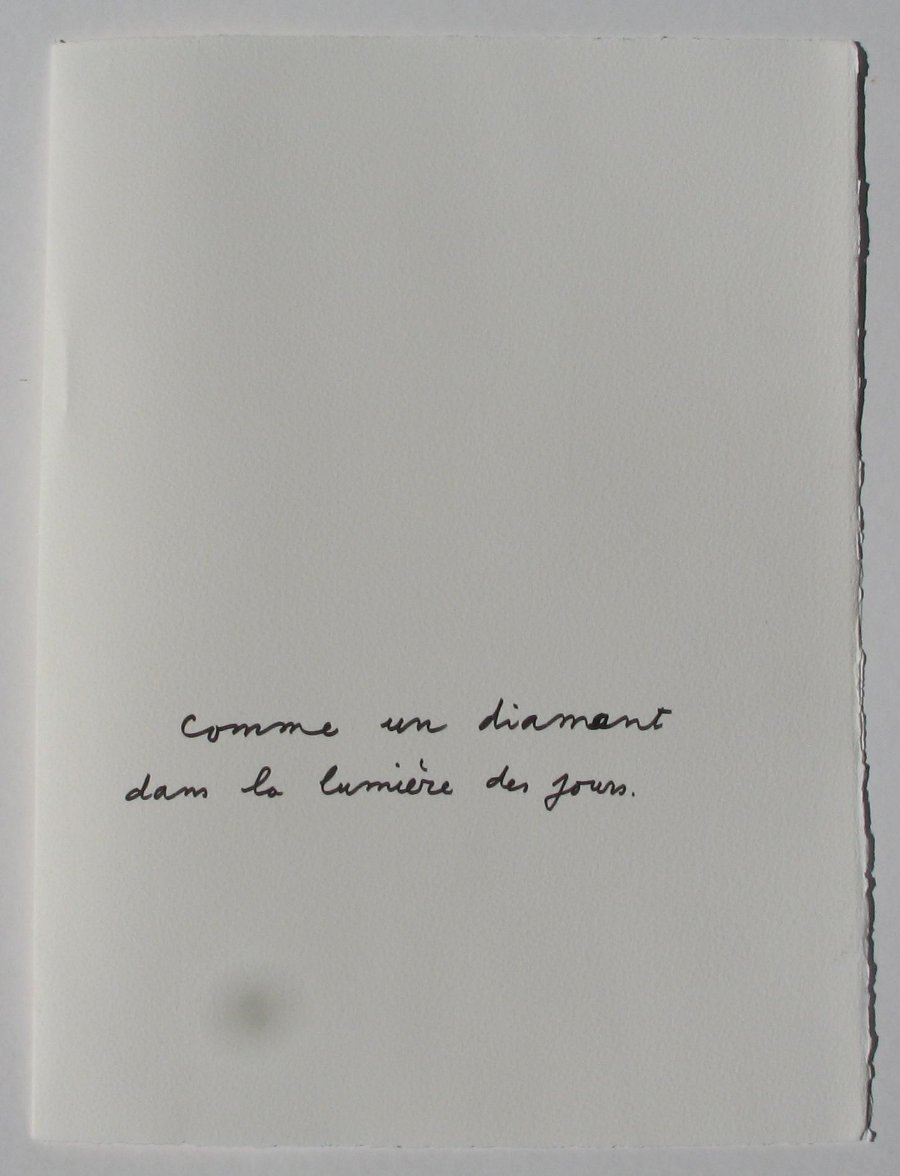 Comme un diamant
dans la lumière des jours.